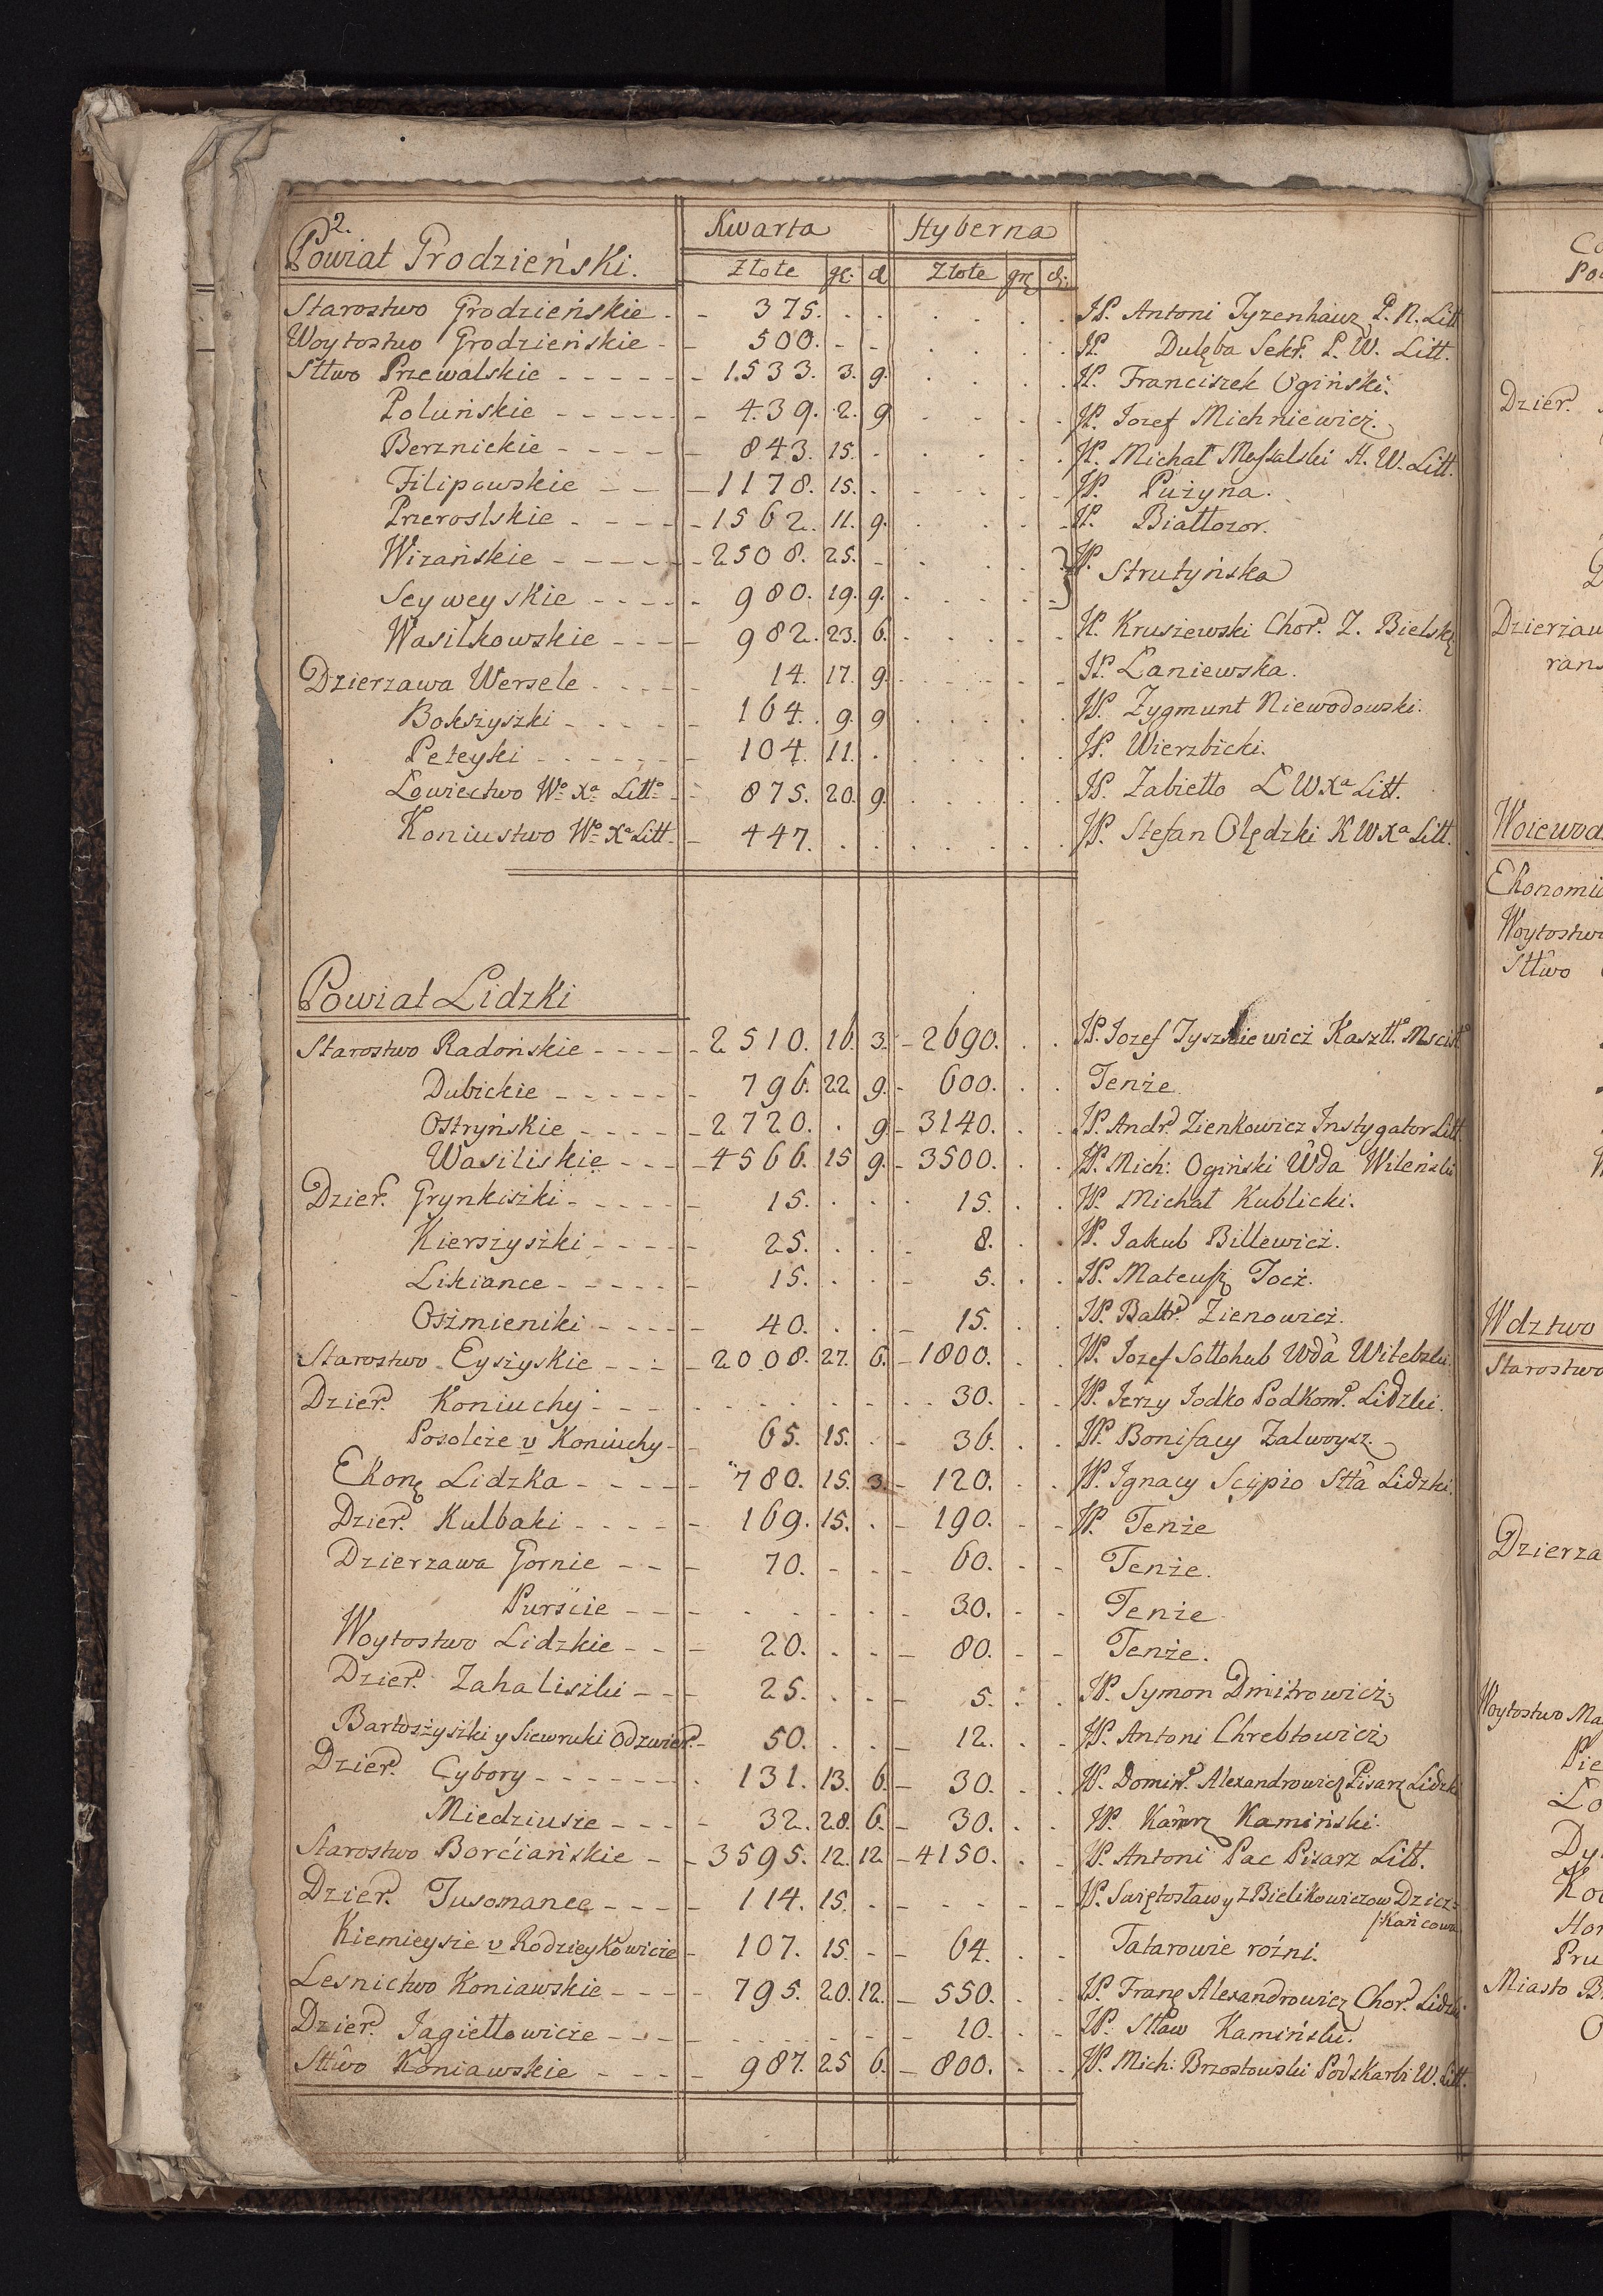 2.
Powiat Grodzieński. Kwarta Hyberna
Złote gr. d. Złote gr. d.
Starostwo Grodzieńskie - - 375. . . . . . JP. Antoni Tyzenhauz P. N. Litt
Woytostwo Grodzieńskie - - 500. - - . . . JP. Dulęba Sekr. P. W. Litt.
Sttwo Przewalskie - - - - - 1533. 3. 9. . . . JP. Franciszek Ogiński.
Poluńskie - - - - - - 439. 2. 9 - - . JP. Iozef Michniewicz.
Berznickie - - - - - 843. 15. . . . . JP. Michał Massalski H. W. Litt.
Filipowskie - - - 1178. 15. . - - - JP. Puzyna.
Przeroslskie - - - - - 1562. 11. 9. . . - JP. Białłozor.
Wizańskie - - - - - 2508. 25. - . . . } JP. Strutyńska
Seyweyskie - - - - - 980. 19. 9. . . .
Wasilkowskie - - - - 982. 23. 6. . . - JP. Kruszewski Chor. Z. Bielsk
Dzierzawa Wersele - - - - 14. 17. 9. - - - JP. Łaniewska.
Bokszyszki - - - - - 164. 9. 9 . . . JP. Zygmunt Niewodowski.
Peteyki - - - - - - 104. 11. . . . . JP. Wierzbicki.
Łowiectwo Wo Xa Litto - - 875. 20. 9. . . . JP. Zabiełło Ł W Xa Litt.
Koniustwo Wo Xa Litt. - 447. . . . . . JP. Stefan Olędzki K W Xa Litt.
Powiat Lidzki
Starostwo Radońskie - - - - - 2510. 16. 3. - 2690. . . JP. Iozef Tyszkiewicz Kasztł. Mscisł
Dubickie - - - - - - 796. 22. 9. - 600. . . Tenże
Ostryńskie - - - - - 2720. . 9 - 3140. . . JP. Andr. Zienkowicz Instygator Litt.
Wasiliskie - - - - 4566. 15 9. - 3500. . . JP. Mich: Ogiński Wda Wileński
Dzier. Grynkiszki - - - - - 15. . . . 15. . . JP. Michał Kublicki.
Kierszyszki - - - - - 25. . . - 8. . . JP. Iakub Billewicz.
Likiance - - - - - - 15. . . - 5. . . JP. Mateusz Tocz.
Oszmieniki - - - - - 40. . . - 15. . . JP. Baltr. Zienowicz.
Starostwo Eyszyskie - - - - 2008. 27. 6. - 1800. . . JP. Iozef Sołłohub Wda Witebski.
Dzier. Koniuchy - - - . - - - - 30. . - JP. Ierzy Iodko Podkom. Lidzki.
Posolcze v Koniuchy - - 65. 15. . - 36. . . JP. Bonifacy Zalwoysz.
Ekon Lidzka - - - - - 780. 15. 3. - 120. . . JP. Ignacy Scypio Stta Lidzki.
Dzier. Kulbaki - - - - - 169. 15. . - 190. - - JP. Tenże
Dzierzawa Gornie - - - 70. - - - 60. - - Tenże.
Purście - - - - - - - - 30. - - Tenże
Woytostwo Lidzkie - - - 20. . - - 80. - - Tenże.
Dzier. Zahaliszki - - - 25. . . - 5. . . JP. Symon Dmitrowicz
Bartoszyszki y Siewruki Odzwier. - 50. . . - 12. . - JP. Antoni Chrebtowicz
Dzier. Cybory - - - - - - - 131. 13. 6. - 30. . . JP. Domin. Alexandrowicz Pisarz Lidzki
Miedziusze - - - - 32. 28. 6. - 30. . . JP. Kazmrz Kamiński.
Starostwo Borćiańskie - - 3595. 12. 12. - 4150. . - JP. Antoni Pac Pisarz Litt.
Dzier. Tusomance - - - - 114. 15. - - - - - JP. Swiętosławy z Bielikowiczow Dzier=
/:Kańcowa
Kiemieysze v Rodzieykowicze - 107. 15. - - 64. . - Tatarowie rożni.
Lesnictwo Koniawskie - - - - 795. 20. 12. - 550. . . JP. Franc Alexandrowicz Chor. Lidzki
Dzier. Iagiełłowicze - - - - - - - - 10. . - JP. Sttaw Kamiński.
Sttwo Koniawskie - - - - 987. 25 6. - 800. . - JP. Mich: Brzostowski Podskarbi W. Litt.
Dzier.
Dzierzaw
rans
Woiewod
Ekonomi
Woytostwo
Sttwo
Wdztwo
Starostwo
Dzierza
Woytostwo Ma
Pie
Lo
Dy
Ko
Hor
Pru
Miasto B
O